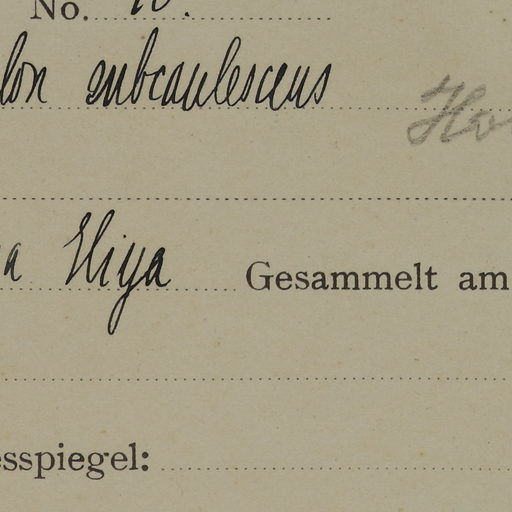 No.
lon subcaulescens
a Eliya Gesammelt am
esspiegel: